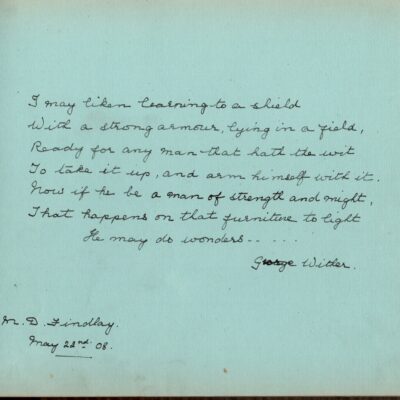 I may liken learning to a shield
With a strong armour, lying in a field,
Ready for any man that hath the wit
To take it up, and arm himself with it.
Now if he be a man of strength and might,
That happens on that furniture to light
He may do wonders.. . . . .
George Wither.
M. D. Findlay.
May 22nd 08.